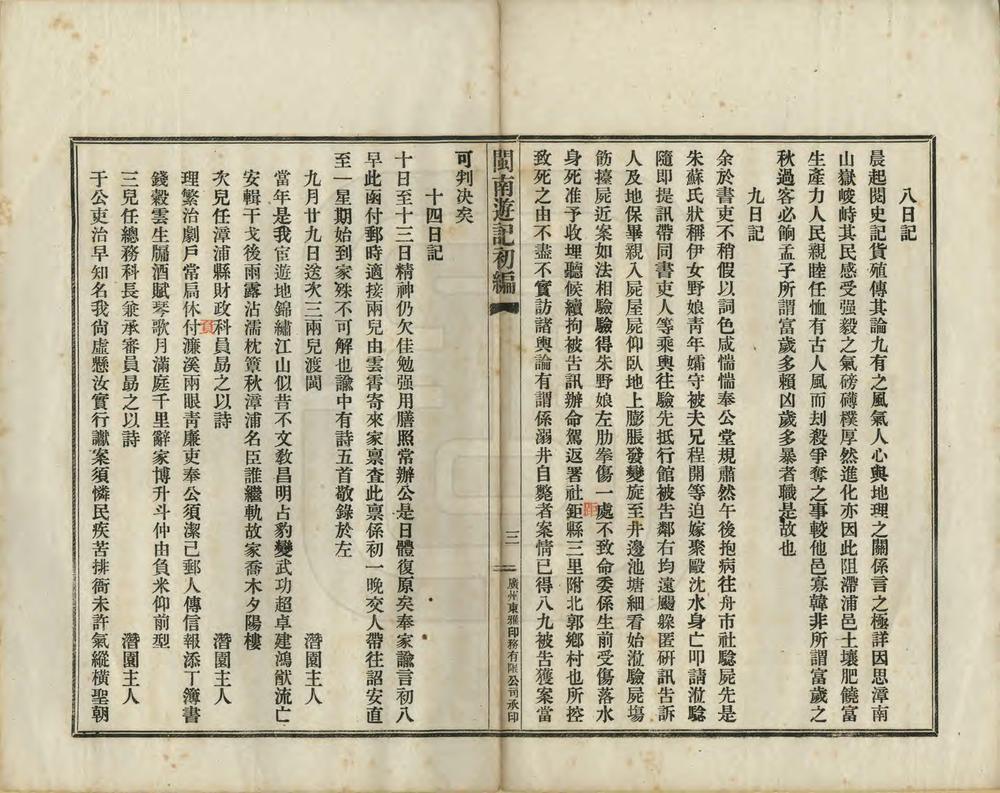 八日記
晨起閱史記貨殖傳其論九有之風氣人心與地理之關係言之極詳因思漳南
山獄峻峙其民感受强毅之氣磅礴樸厚然進化亦因此阻滯浦邑土壤肥饒富
生產力人民親睦任恤有古人風而刦殺爭奪之事較他邑寡韓非所謂富歲之
秋過客必餉孟子所謂富歲多賴凶歲多暴者職是故也
九日記
余於書吏不稍假以詞色咸惴惴奉公堂規肅然午後抱病往舟市社騐屍先是
朱蘇氏狀稱伊女野娘靑年孀守被夫兄程開等迫嫁聚毆沈水身亡叩請涖騐
隨即提訊帶同書吏人等乘輿往驗先抵行館被告鄰右均遠颺躱匿硏訊告訴
人及地保畢親入屍屋屍仰臥地上膨脹發變旋至井邊池塘細看始涖驗屍塲
飭擡屍近案如法相驗驗得朱野娘左肋拳傷一處不致命委係生前受傷落水
身死准予收埋聽候續拘被吿訊辦命駕返署社鉅縣三里附北郭鄉村也所控
距
致死之由不盡不實訪諸輿論有謂係溺井自斃者案情已得八九被吿獲案當
閩南遊記初編
三
廣州東雅印務有限公司承印
可判決矣
十四日記
十日至十三日精神仍欠佳勉强用膳照常辦公是日體復原矣奉家諭言初八
早此函付郵時適接兩兒由雲霄寄來家禀查此禀係初一晚交人帶往詔安直
至一星期始到家殊不可解也諭中有詩五首敬錄於左
九月廿九日送次三兩兒渡閩 潛園主人
當年是我宦遊地錦繡江山似昔不文敎昌明占豹變武功超卓建鴻猷流亡
安輯干戈後雨露沾濡枕簟秋漳浦名臣誰繼軌故家喬木夕陽樓
次兒任漳浦縣財政科員勗之以詩 潛園主人
頁
理繁治劇戶常局休付濂溪兩眼靑廉吏奉公須潔己郵人傳信報添丁簿書
錢穀雲生牖酒賦琴歌月滿庭千里辭家博升斗仲由負米仰前型
三兒任總務科長兼承審員勗之以詩 潛園主人
于公吏治早知名我尙虛懸汝實行讞案須憐民疾苦排衙未許氣縱橫聖朝